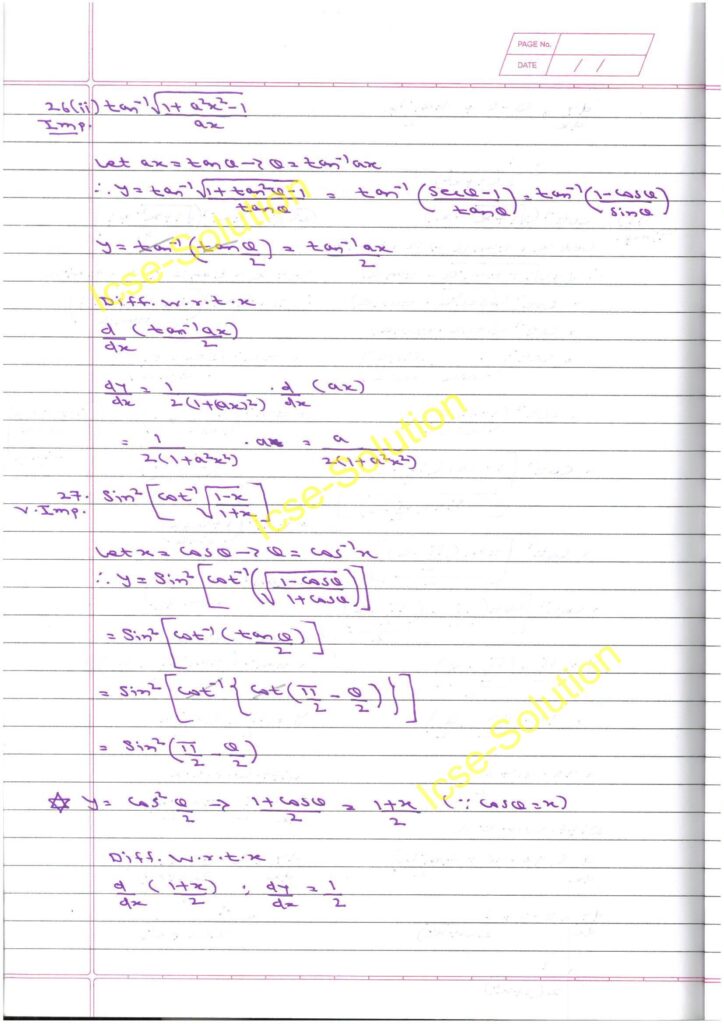 PAGE No.
DATE / /
26(ii) tan⁻¹ √(1+a²x²-1) / ax
Imp.
Let ax = tanθ → θ = tan⁻¹ax
∴ y = tan⁻¹ √(1+tan²θ-1) / tanθ = tan⁻¹ (secθ-1 / tanθ) = tan⁻¹ (1-cosθ / sinθ)
y = tan⁻¹ (tan θ/2) = tan⁻¹ax / 2
Diff. w.r.t.x
d/dx (tan⁻¹ax / 2)
dy/dx = 1 / 2(1+(ax)²) · d/dx (ax)
= 1 / 2(1+a²x²) · a = a / 2(1+a²x²)
27. Sin² [cot⁻¹ √(1-x / 1+x)]
V.Imp.
Let x = cosθ → θ = cos⁻¹x
∴ y = Sin² [cot⁻¹ (√(1-cosθ / 1+cosθ))]
= Sin² [cot⁻¹ (tan θ/2)]
= Sin² [cot⁻¹ {cot (π/2 - θ/2)}]
= Sin² (π/2 - θ/2)
☆ y = cos² θ/2 → 1+cosθ / 2 = 1+x / 2 (∵ cosθ = x)
Diff. w.r.t.x
d/dx (1+x / 2) ; dy/dx = 1/2
Icse-Solution
Icse-Solution
Icse-Solution